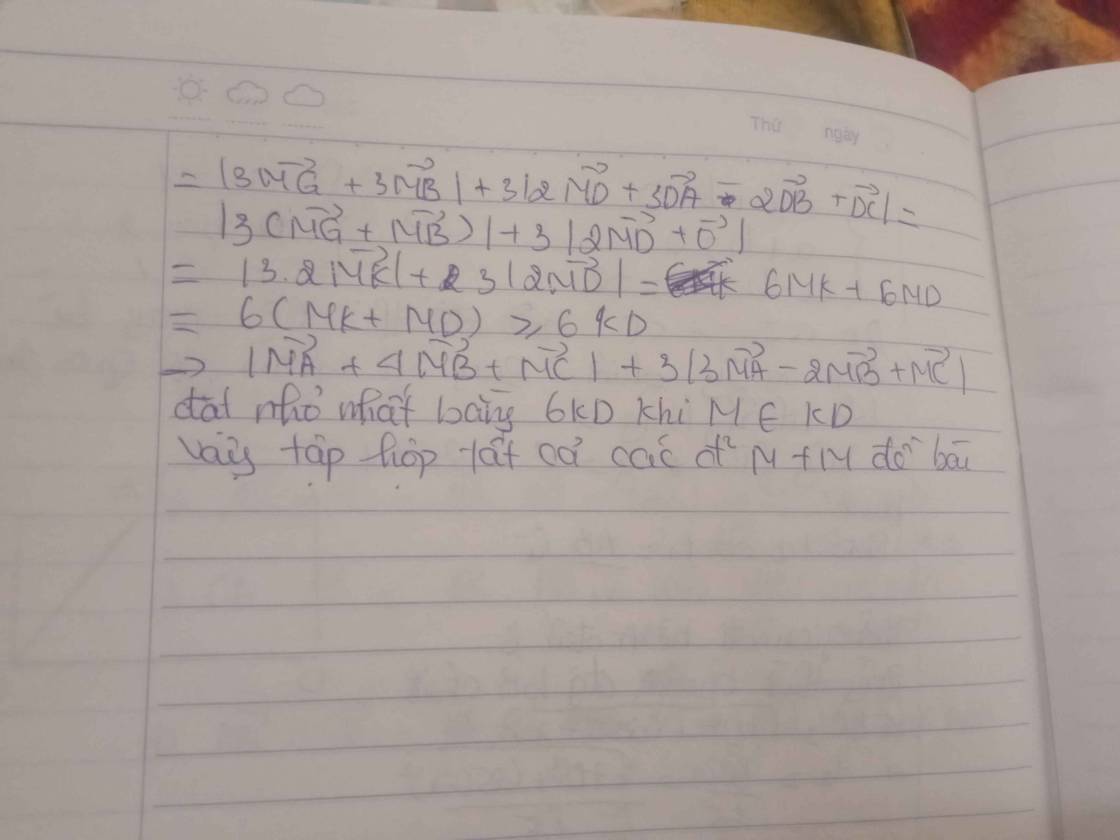 Thứ ngày
= |3MG⃗ + 3MB⃗| + 3|2MD⃗ + 3DA⃗ - 2DB⃗ + DC⃗| =
|3(MG⃗ + MB⃗)| + 3|2MD⃗ + 0⃗|
= |3.2MK⃗| + 3|2MD⃗| = 6MK + 6MD
= 6(MK + MD) ≥ 6KD
→ |MA⃗ + 4MB⃗ + MC⃗| + 3|3MA⃗ - 2MB⃗ + MC⃗|
đạt nhỏ nhất bằng 6KD khi M ∈ KD
Vậy tập hợp tất cả các đ² M t/M đề bài